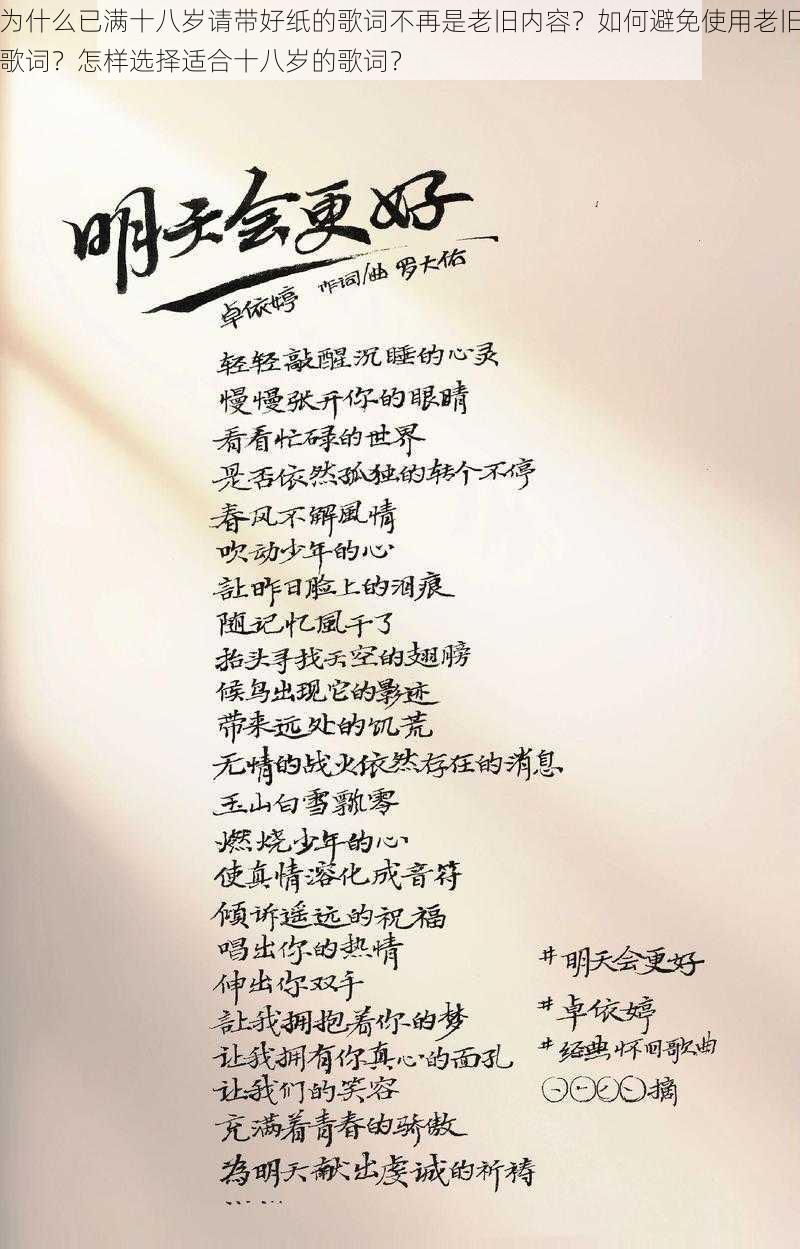 为什么已满十八岁请带好纸的歌词不再是老旧内容？如何避免使用老旧
歌词？怎样选择适合十八岁的歌词？
明天会更好
卓依婷 作词/曲 罗大佑
轻轻敲醒沉睡的心灵
慢慢张开你的眼睛
看看忙碌的世界
是否依然孤独的转个不停
春风不解風情
吹动少年的心
讓昨日脸上的泪痕
随记忆風干了
抬头寻找天空的翅膀
候鸟出现它的影迹
带来远处的饥荒
无情的战火依然存在的消息
玉山白雪飘零
燃烧少年的心
使真情溶化成音符
倾诉遥远的祝福
唱出你的热情
伸出你双手
讓我拥抱着你的梦
让我拥有你真心的面孔
让我们的笑容
充满着青春的骄傲
為明天献出虔诚的祈祷
……
#明天会更好
#卓依婷
#经典怀旧歌曲
摘